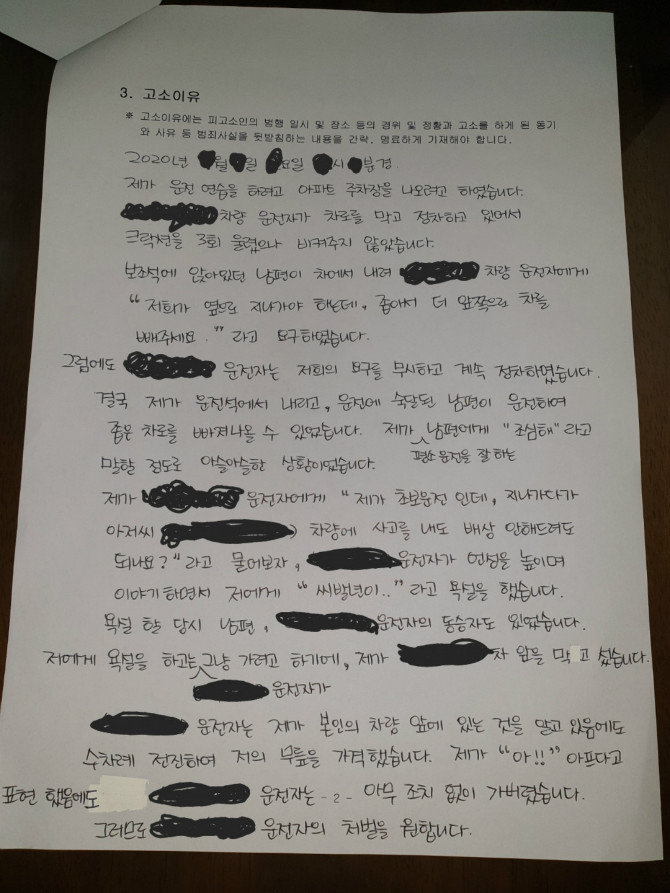 3. 고소이유
※ 고소이유에는 피고소인의 범행 일시 및 장소 등의 경위 및 정황과 고소를 하게 된 동기
와 사유 등 범죄사실을 뒷받침하는 내용을 간략, 명료하게 기재해야 합니다.
2020년 월 일 요일 시 분경
제가 운전 연습을 하려고 아파트 주차장을 나오려고 하였습니다.
차량 운전자가 차로를 막고 정차하고 있어서
크락션을 3회 울렸으나 비켜주지 않았습니다.
보조석에 앉아있던 남편이 차에서 내려 차량 운전자에게
"저희가 옆으로 지나가야 하는데, 좁아서 더 앞쪽으로 차를
빼주세요." 라고 요구하였습니다.
그럼에도 운전자는 저희의 요구를 무시하고 계속 정차하였습니다.
결국 제가 운전석에서 내리고, 운전에 숙달된 남편이 운전하여
좁은 차로를 빠져나올 수 있었습니다. 제가 남편에게 "조심해" 라고
평소 운전을 잘 하는
말할 정도로 아슬아슬한 상황이었습니다.
제가 운전자에게 "제가 초보운전 인데, 지나가다가
아저씨 ) 차량에 사고를 내도 배상 안해드려도
되나요?" 라고 물어보자, 운전자가 언성을 높이며
이야기하면서 저에게 "씨발년이.." 라고 욕설을 했습니다.
욕설 할 당시 남편, 운전자의 동승자도 있었습니다.
저에게 욕설을 하고는 그냥 가려고 하기에, 제가 차 앞을 막고 섰습니다.
운전자가
운전자는 제가 본인의 차량 앞에 있는 것을 알고 있음에도
수차례 전진하여 저의 무릎을 가격했습니다. 제가 "아!!" 아프다고
표현 했음에도 운전자는 아무 조치 없이 가버렸습니다.
- 2 -
그러므로 운전자의 처벌을 원합니다.